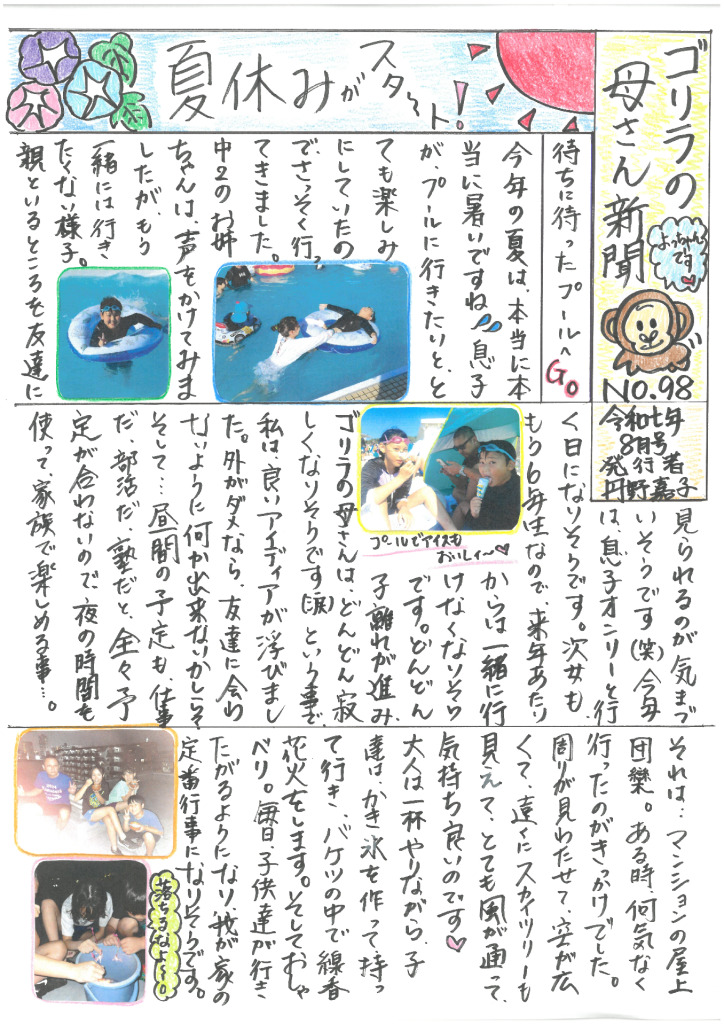 ゴリラの
母さん新聞
よっちゃん
です♡
NO.98
令和七年
8月号
発行者
丹野嘉子
夏休みが
スタート!
待ちに待ったプールへGo
今年の夏は、本当に本
当に暑いですね。息子
が、プールに行きたいと、と
ても楽しみ
にしていたの
で、さっそく行っ
てきました。
中2のお姉
ちゃんは、声をかけてみま
したが、もう
一緒には行き
たくない様子。
親といるところを友達に
見られるのが気まづ
いそうです(笑)今年
は、息子オンリーと行
く日になりそうです。次女も、
もう6年生なので、来年あたり
からは一緒に行
けなくなりそう
です。どんどん
子離れが進み、
プールでアイスも
おいしぃ〜♡
ゴリラの母さんは、どんどん寂
しくなりそうです(涙)という事で、
私は、良いアイディアが浮びまし
た。外がダメなら、友達に会わ
ないように何か出来ないかしら?
そして…昼間の予定も、仕事
だ、部活だ、塾だと、全々予
定が合わないので、夜の時間を
使って、家族で楽しめる事…。
それは…マンションの屋上
団欒。ある時、何気なく
行ったのがきっかけでした。
周りが見わたせて、空が広
くて、遠くにスカイツリーも
見えて、とても風が通って、
気持ち良いのです♡
大人は一杯やりながら、子
達は、かき氷を作って持っ
て行き、バケツの中で線香
花火をします。そしておしゃ
べり。毎日、子供達が行き
たがるようになり、我が家の
定番行事になりそうです。
落ちるなよ〜。